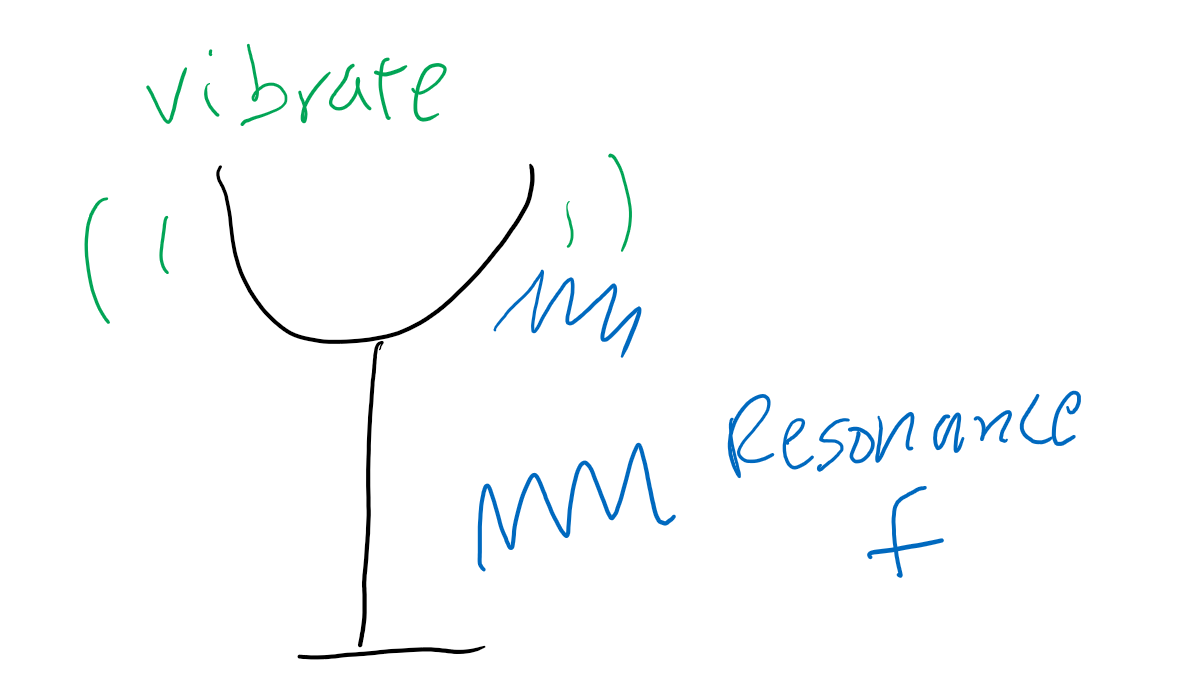 vibrate
Resonance
f